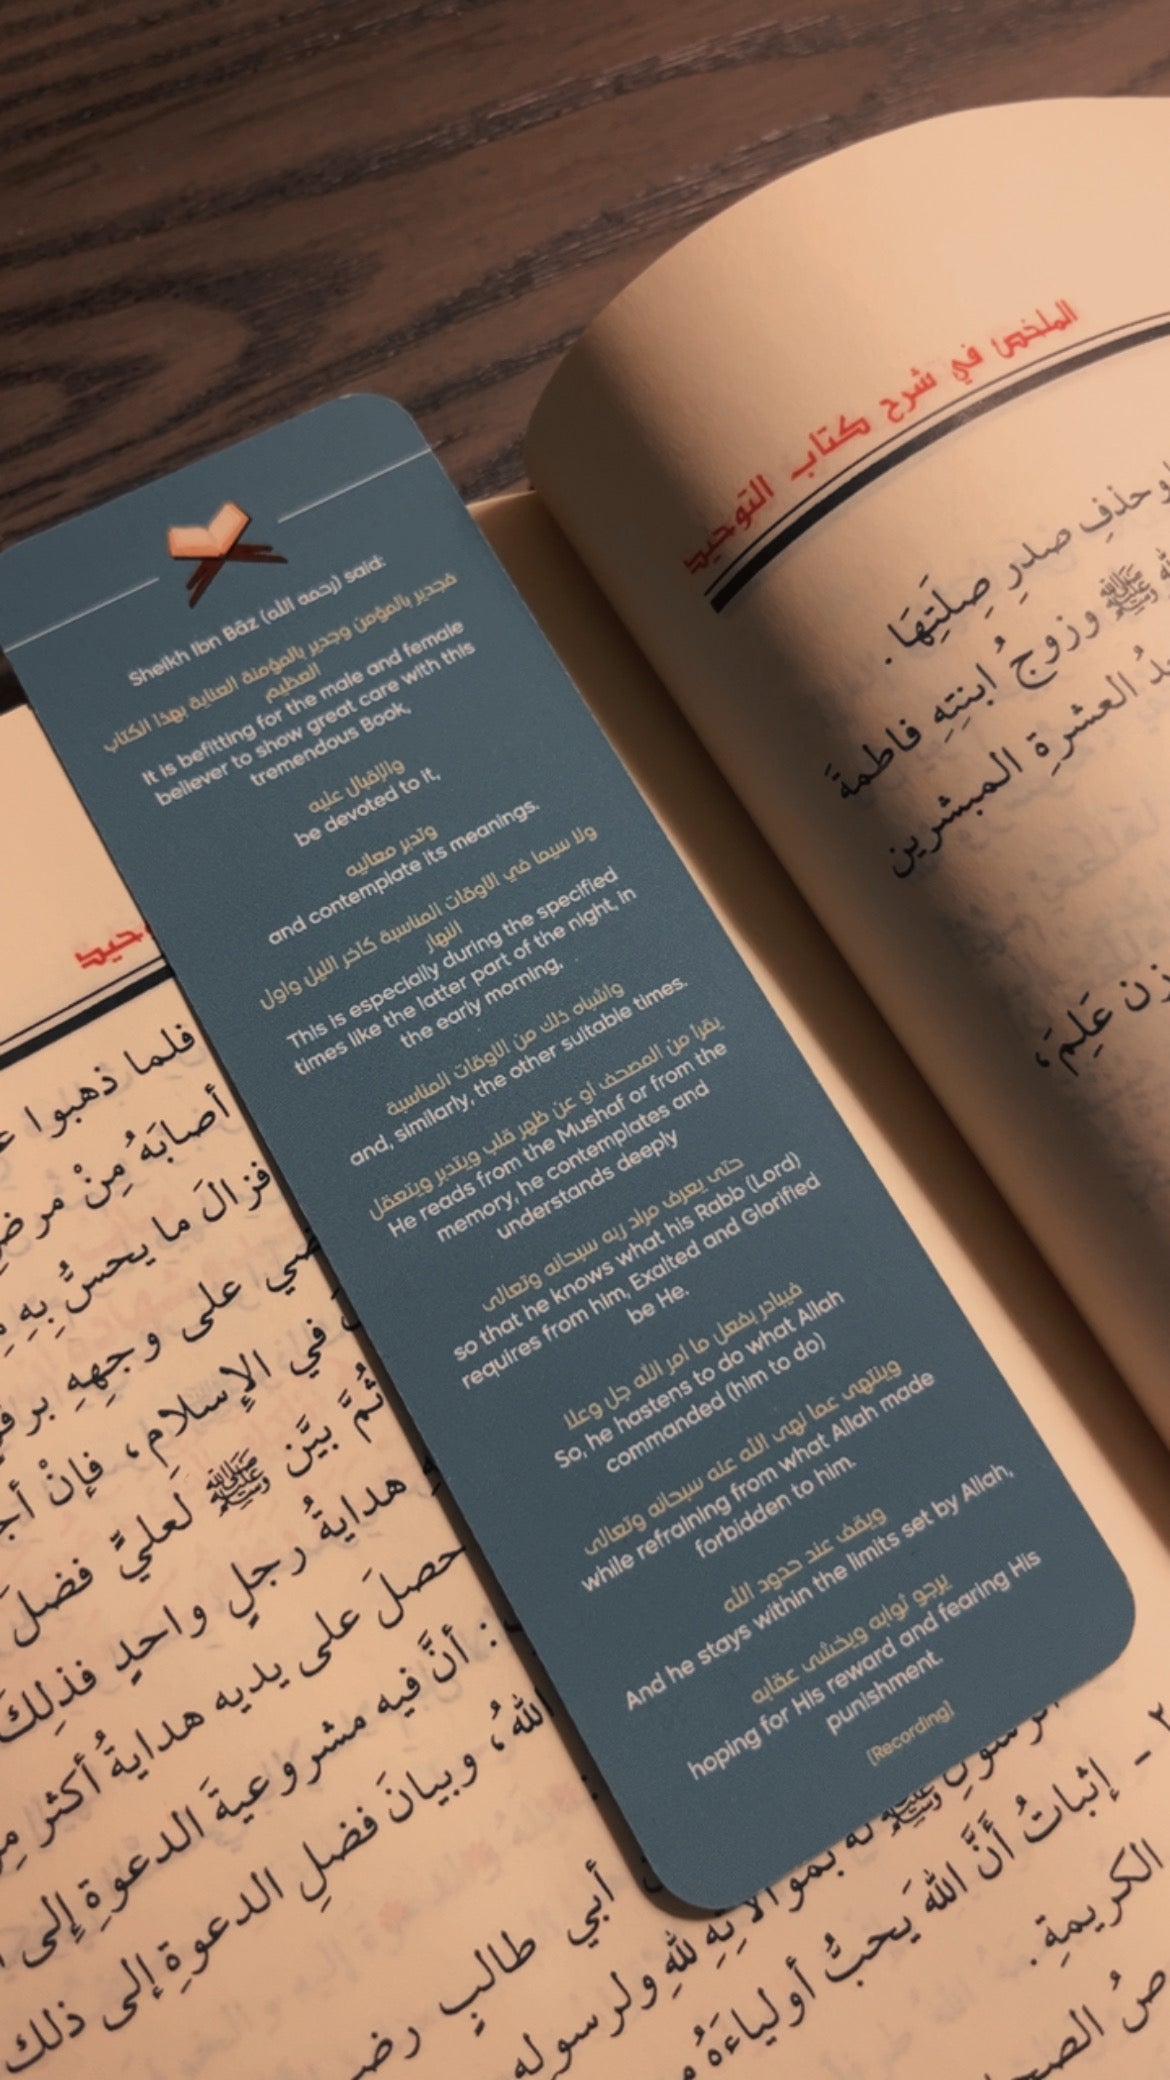 Sheikh Ibn Bāz (رحمه الله) said:
فجدير بالمؤمن وجدير بالمؤمنة العناية بهذا الكتاب
العظيم
It is befitting for the male and female
believer to show great care with this
tremendous Book,
والإقبال عليه
be devoted to it,
وتدبر معانيه
and contemplate its meanings.
ولا سيما في الأوقات المناسبة كآخر الليل وأول
النهار
This is especially during the specified
times like the latter part of the night, in
the early morning,
وأشباه ذلك من الأوقات المناسبة
and, similarly, the other suitable times.
يقرأ من المصحف أو عن ظهر قلب ويتدبر ويتعقل
He reads from the Mushaf or from the
memory, he contemplates and
understands deeply
حتى يعرف مراد ربه سبحانه وتعالى
so that he knows what his Rabb (Lord)
requires from him, Exalted and Glorified
be He.
فيبادر بفعل ما أمر الله جل وعلا
So, he hastens to do what Allah
commanded (him to do)
وينتهى عما نهى الله عنه سبحانه وتعالى
while refraining from what Allah made
forbidden to him.
ويقف عند حدود الله
And he stays within the limits set by Allah,
يرجو ثوابه ويخشى عقابه
hoping for His reward and fearing His
punishment.
[Recording]
الملخص في شرح كتاب التوحيد
حذفِ صدرِ صِلَتِهَا.
ﷺ وزوجُ ابنتِهِ فاطمةَ
العشرةِ المبشرين
عَلِمَ،
فلما ذهبوا
أصابَهُ مِنْ مرضٍ
فزالَ ما يحسُّ بِهِ
على وجهِهِ
في الإسلامِ، فإنْ
ثُمَّ بيَّن ﷺ لعليٍّ فضلَ
هدايةُ رجلٍ واحدٍ فذلِكَ
حصلَ على يديه هدايةُ أكثر
: أنَّ فيه مشروعيةَ الدعوةِ إلى
اللهُ، وبيانَ فضلِ الدعوةِ إلى ذلك
أبي طالبٍ
ﷺ
لهُ بموالاتِهِ للهِ ولرسوله
٢ ـ إثباتُ أنَّ اللهَ يحبُّ أولياءَهُ
الكريمةِ.